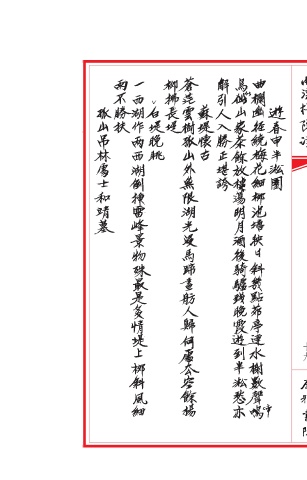 遊春申半淞園
曲欄幽徑繞梅花細柳池塘秧日斜幾點茆亭連水榭數聲鳴
鳥似山家茶餘放櫂蕩明月酒後騎驢踐晚霞遊到半淞愁亦
解引人入勝正堪誇
蘇堤懷古
蒼茫雲樹孤山外無限湖光漫馬蹄畫舫人歸何處公空餘楊
柳拂長堤
白堤晚眺
一西湖作兩西湖倒棟雷峰景物殊最是多情堤上柳斜風細
雨不勝扶
孤山吊林處士和靖墓